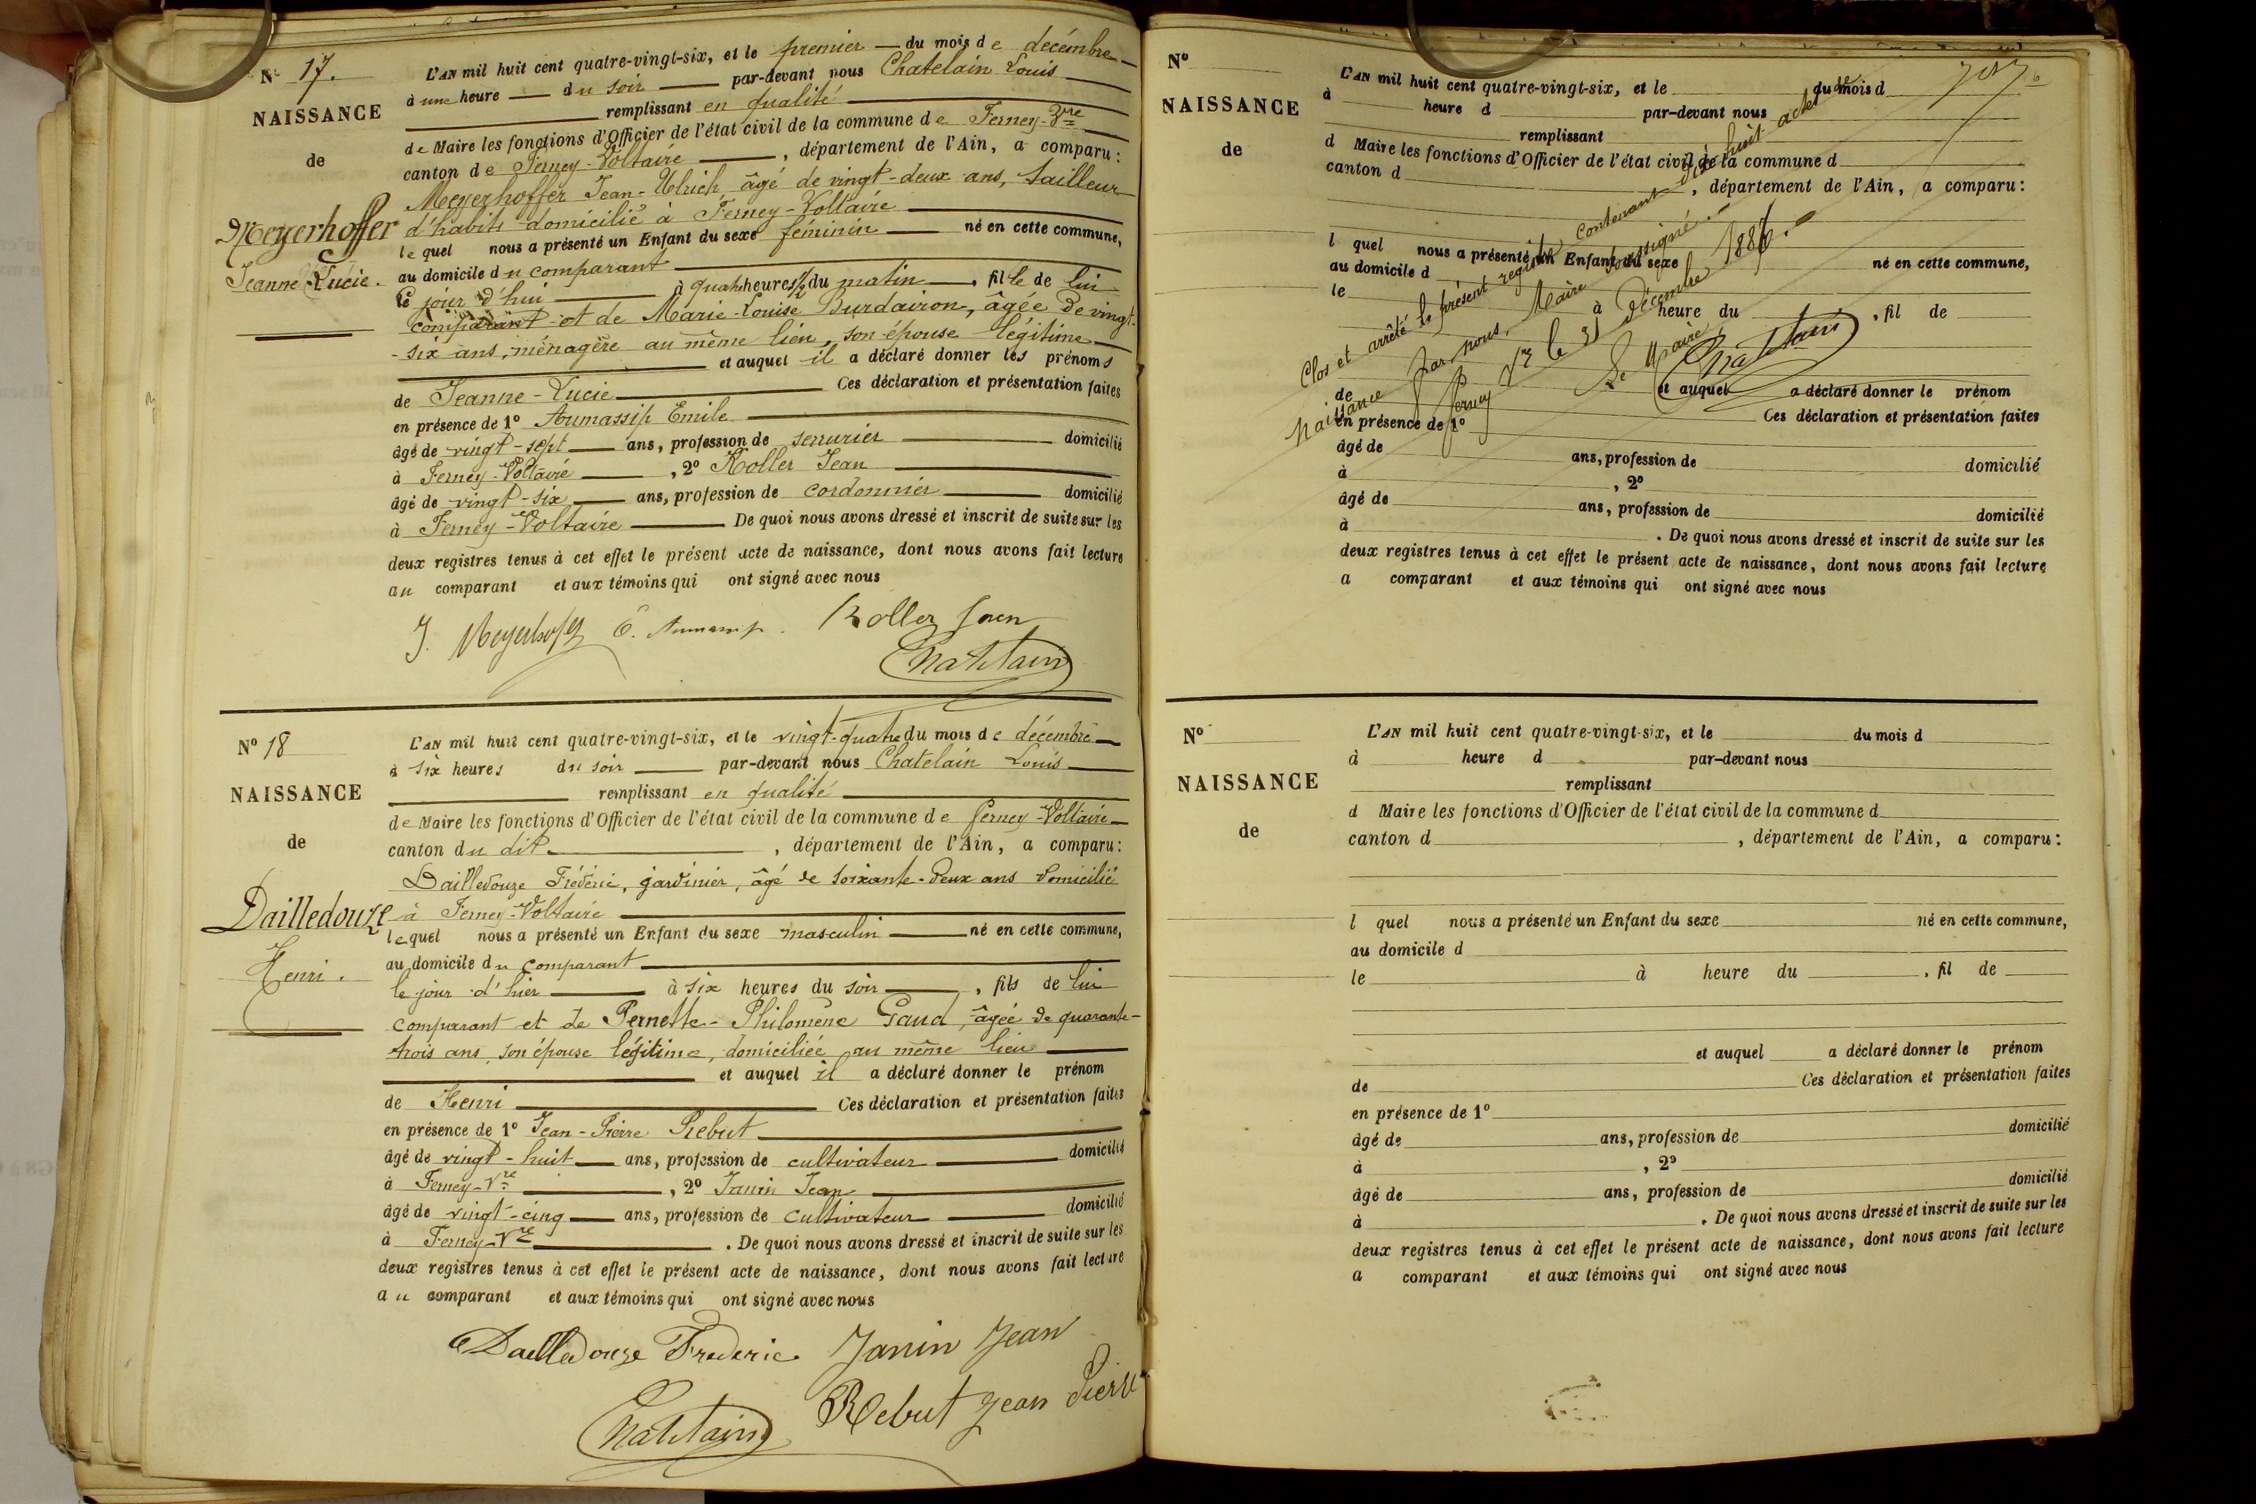 N° 17.
NAISSANCE
de
Meyerhoffer
Jeanne Lucie.
L'AN mil huit cent quatre-vingt-six, et le premier du mois de décembre
à une heure du soir par-devant nous Chatelain Louis
remplissant en qualité
de Maire les fonctions d'Officier de l'état civil de la commune de Ferney-Vre
canton de Ferney-Voltaire, département de l'Ain, a comparu:
Meyerhoffer Jean-Ulrich, âgé de vingt-deux ans, tailleur
d'habits domicilié à Ferney-Voltaire
lequel nous a présenté un Enfant du sexe féminin né en cette commune,
au domicile du comparant
le jour d'hui à quatre heures 1/2 du matin, fille de lui
comparant et de Marie-Louise Burdairon, âgée de vingt-
-six ans, ménagère au même lieu, son épouse légitime
et auquel il a déclaré donner les prénoms
de Jeanne-Lucie Ces déclaration et présentation faites
en présence de 1° Aumassip Emile
âgé de vingt-sept ans, profession de serrurier domicilié
à Ferney-Voltaire, 2° Koller Jean
âgé de vingt-six ans, profession de cordonnier domicilié
à Ferney-Voltaire De quoi nous avons dressé et inscrit de suite sur les
deux registres tenus à cet effet le présent acte de naissance, dont nous avons fait lecture
au comparant et aux témoins qui ont signé avec nous
J. Meyerhoffer E. Aumassip. Koller Jean
Chatelain
N° 18
NAISSANCE
de
Dailledouze
Henri.
L'AN mil huit cent quatre-vingt-six, et le vingt-quatre du mois de décembre
à six heures du soir par-devant nous Chatelain Louis
remplissant en qualité
de Maire les fonctions d'Officier de l'état civil de la commune de Ferney-Voltaire
canton du dit, département de l'Ain, a comparu:
Dailledouze Fréderic, jardinier, âgé de soixante-deux ans domicilié
à Ferney-Voltaire
lequel nous a présenté un Enfant du sexe masculin né en cette commune,
au domicile du comparant
le jour d'hier à six heures du soir, fils de lui
comparant et de Pernette-Philomène Gaud, âgée de quarante-
trois ans, son épouse légitime, domiciliée au même lieu
et auquel il a déclaré donner le prénom
de Henri Ces déclaration et présentation faites
en présence de 1° Jean-Pierre Rebut
âgé de vingt-huit ans, profession de cultivateur domicilié
à Ferney-Vre, 2° Janin Jean
âgé de vingt-cinq ans, profession de cultivateur domicilié
à Ferney-Vre. De quoi nous avons dressé et inscrit de suite sur les
deux registres tenus à cet effet le présent acte de naissance, dont nous avons fait lecture
au comparant et aux témoins qui ont signé avec nous
Dailledouze Frederic Janin Jean
Chatelain Rebut Jean Pierre
N°
NAISSANCE
de
L'AN mil huit cent quatre-vingt-six, et le du mois d
à heure d par-devant nous
remplissant
d Maire les fonctions d'Officier de l'état civil de la commune d
canton d, département de l'Ain, a comparu:
l quel nous a présenté un Enfant du sexe né en cette commune,
au domicile d
le à heure du, fil de
et auquel a déclaré donner le prénom
de Ces déclaration et présentation faites
en présence de 1°
âgé de ans, profession de domicilié
à, 2°
âgé de ans, profession de domicilié
à. De quoi nous avons dressé et inscrit de suite sur les
deux registres tenus à cet effet le présent acte de naissance, dont nous avons fait lecture
a comparant et aux témoins qui ont signé avec nous
Clos et arrêté le présent registre contenant dix-huit actes de
Naissance par nous, Maire soussigné.
Ferney Vre le 31 Décembre 1886.
Le Maire,
Chatelain
N°
NAISSANCE
de
L'AN mil huit cent quatre-vingt-six, et le du mois d
à heure d par-devant nous
remplissant
d Maire les fonctions d'Officier de l'état civil de la commune d
canton d, département de l'Ain, a comparu:
l quel nous a présenté un Enfant du sexe né en cette commune,
au domicile d
le à heure du, fil de
et auquel a déclaré donner le prénom
de Ces déclaration et présentation faites
en présence de 1°
âgé de ans, profession de domicilié
à, 2°
âgé de ans, profession de domicilié
à. De quoi nous avons dressé et inscrit de suite sur les
deux registres tenus à cet effet le présent acte de naissance, dont nous avons fait lecture
a comparant et aux témoins qui ont signé avec nous